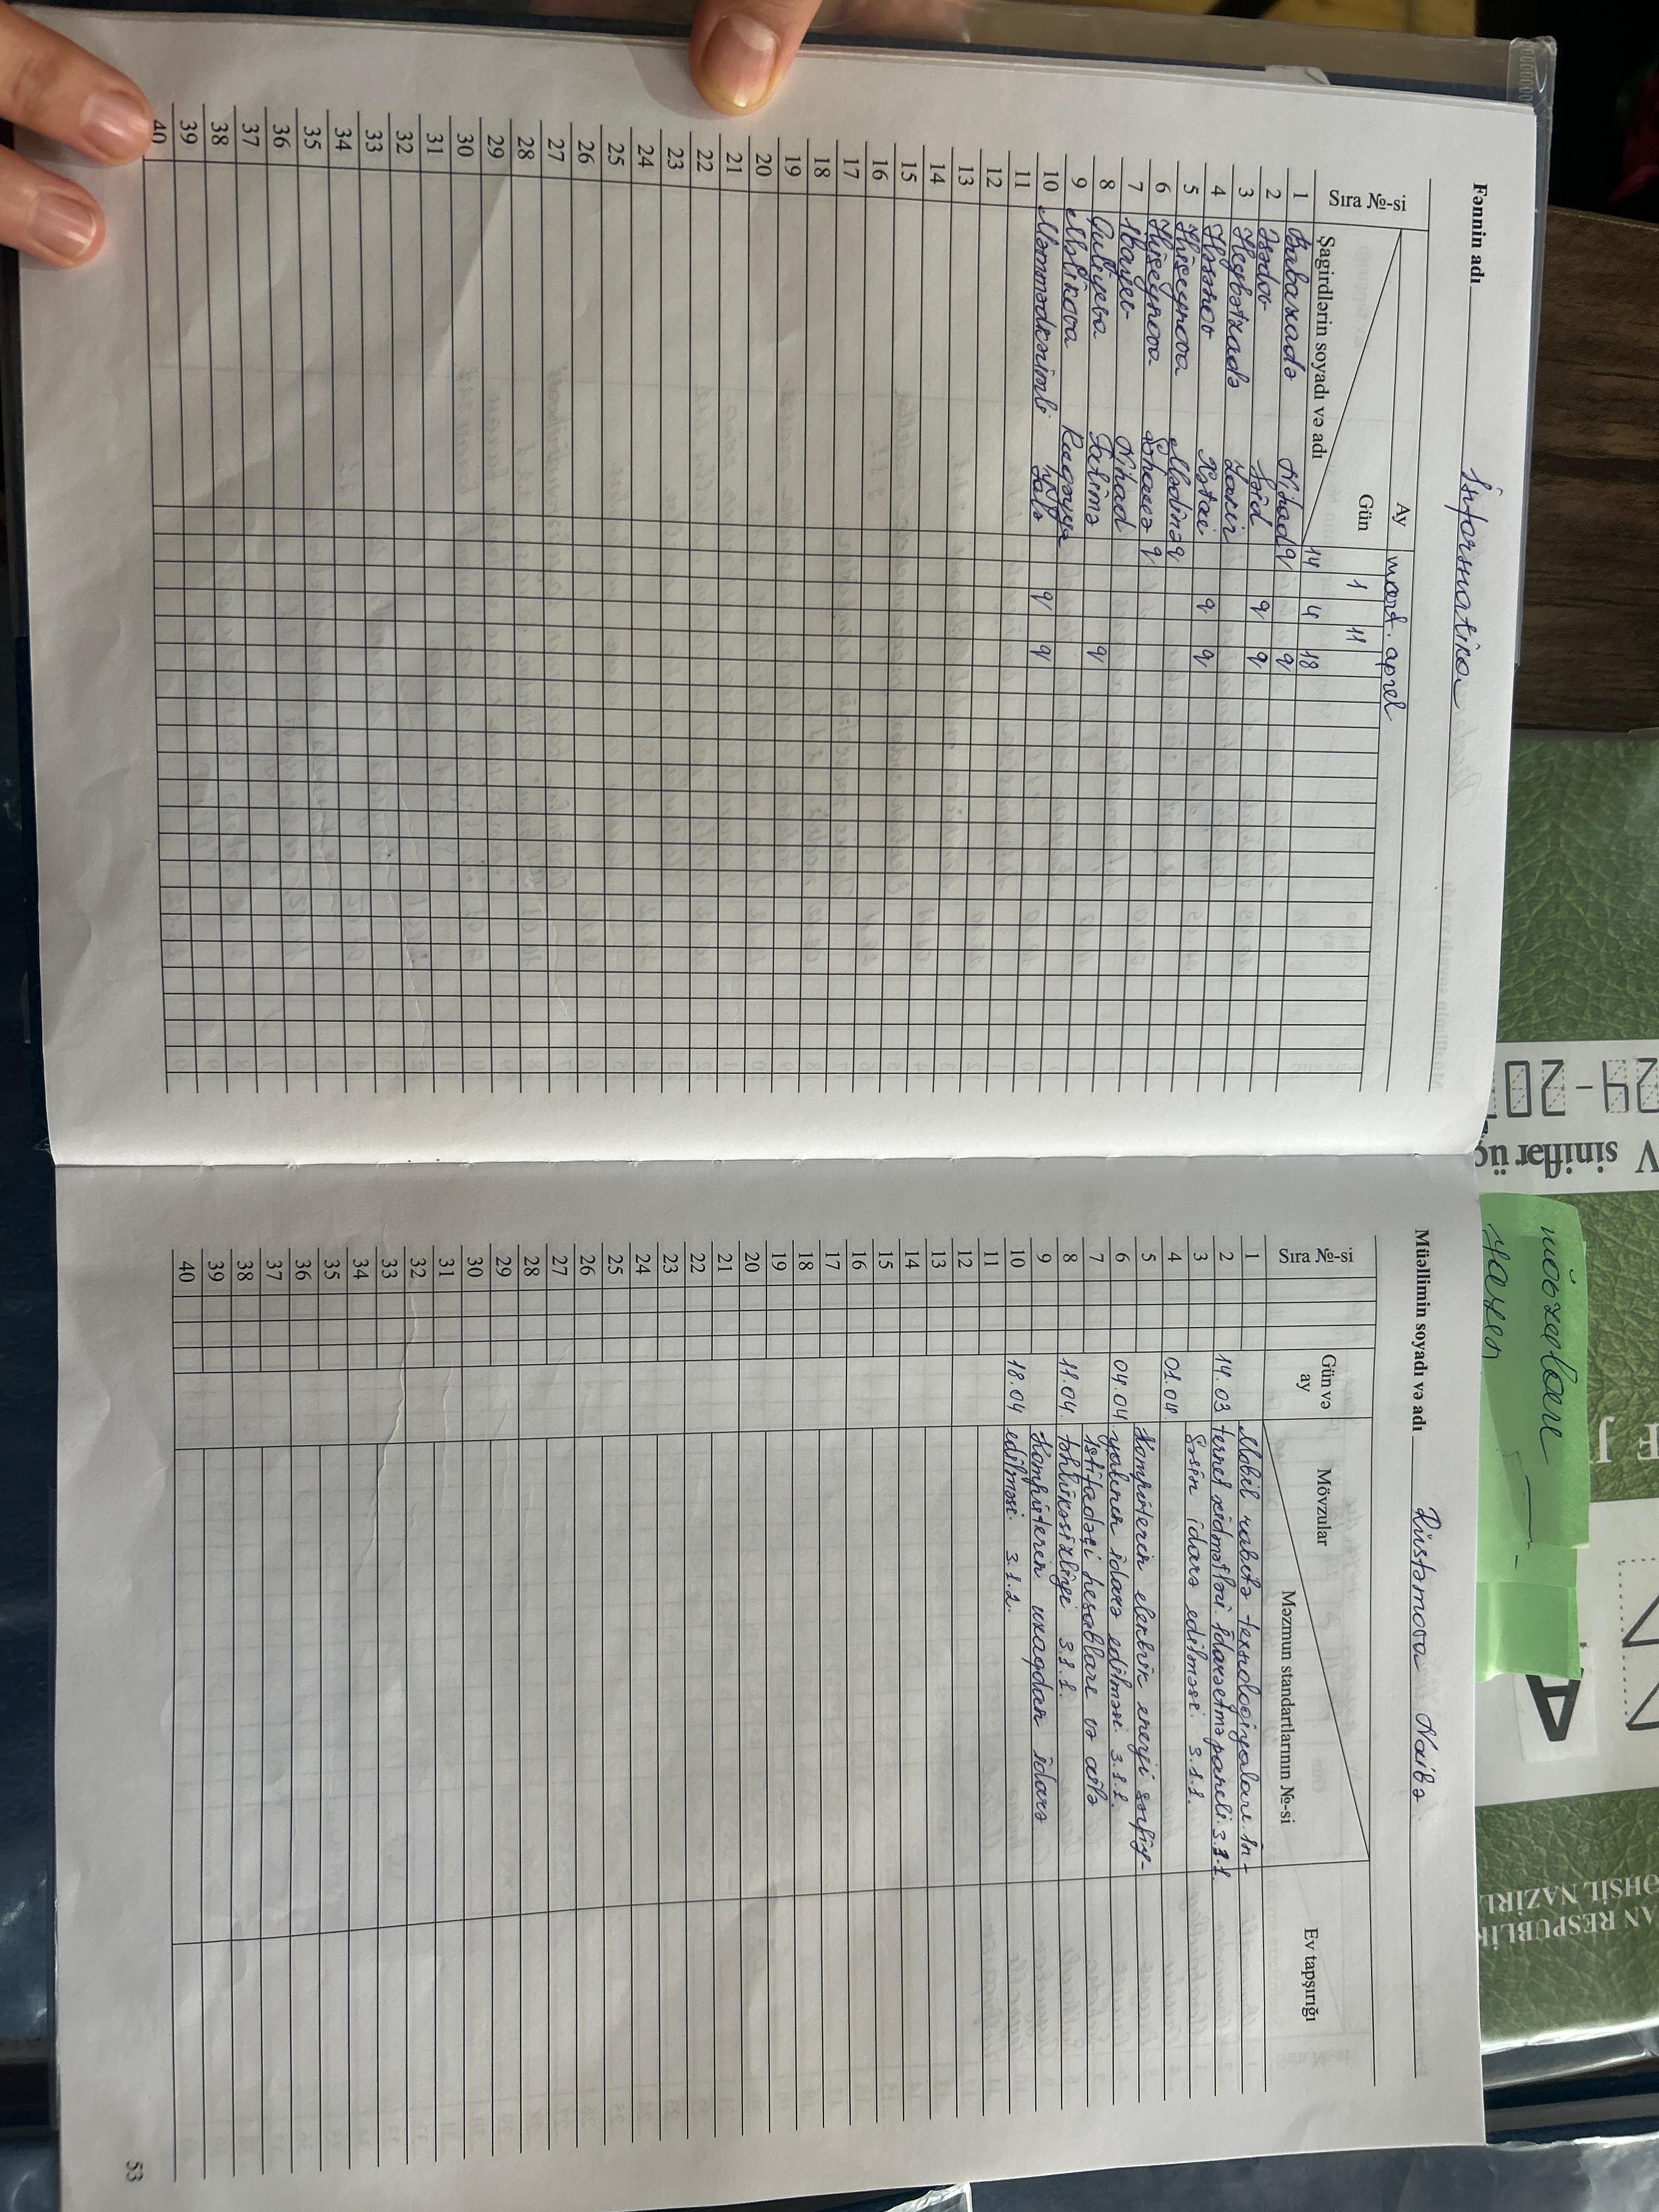 24-20
V siniflər üç
F J
A
AN RESPUBLİK
ƏHSİL NAZİRL
mövzuları
yazın
Fənnin adı İnformatika
Sıra №-si
Ay mart. aprel
Gün 14 1 4 11 18
Şagirdlərin soyadı və adı
1 Babazadə Nihad q q
2 Əsədov Səid q q
3 Heybətzadə Zakir
4 Həsənov Xətai q q
5 Hüseynova Mədinə q
6 Hüseynova q
7 Nihad
8 Quliyeva Fatimə q
9 Məlikova Ruqəyyə
10 Məmmədkərimli Jalə q q
11
12
13
14
15
16
17
18
19
20
21
22
23
24
25
26
27
28
29
30
31
32
33
34
35
36
37
38
39
40
Müəllimin soyadı və adı Rüstəmova Naibə
Sıra №-si
Gün və ay
Mövzular
Məzmun standartlarının №-si
Ev tapşırığı
1 Mobil rabitə texnologiyaları. İn-
2 14.03 ternet xidmətləri. İdarəetmə paneli. 3.1.1.
3 Səsin idarə edilməsi. 3.1.1.
4 01.04
5 Kompüterin elektrik enerji sərfiy-
6 04.04 yatının idarə edilməsi. 3.1.1.
7 İstifadəçi hesabları və ailə
8 11.04. təhlükəsizliyi 3.1.1.
9 Kompüterin uzaqdan idarə
10 18.04 edilməsi. 3.1.2.
11
12
13
14
15
16
17
18
19
20
21
22
23
24
25
26
27
28
29
30
31
32
33
34
35
36
37
38
39
40
53